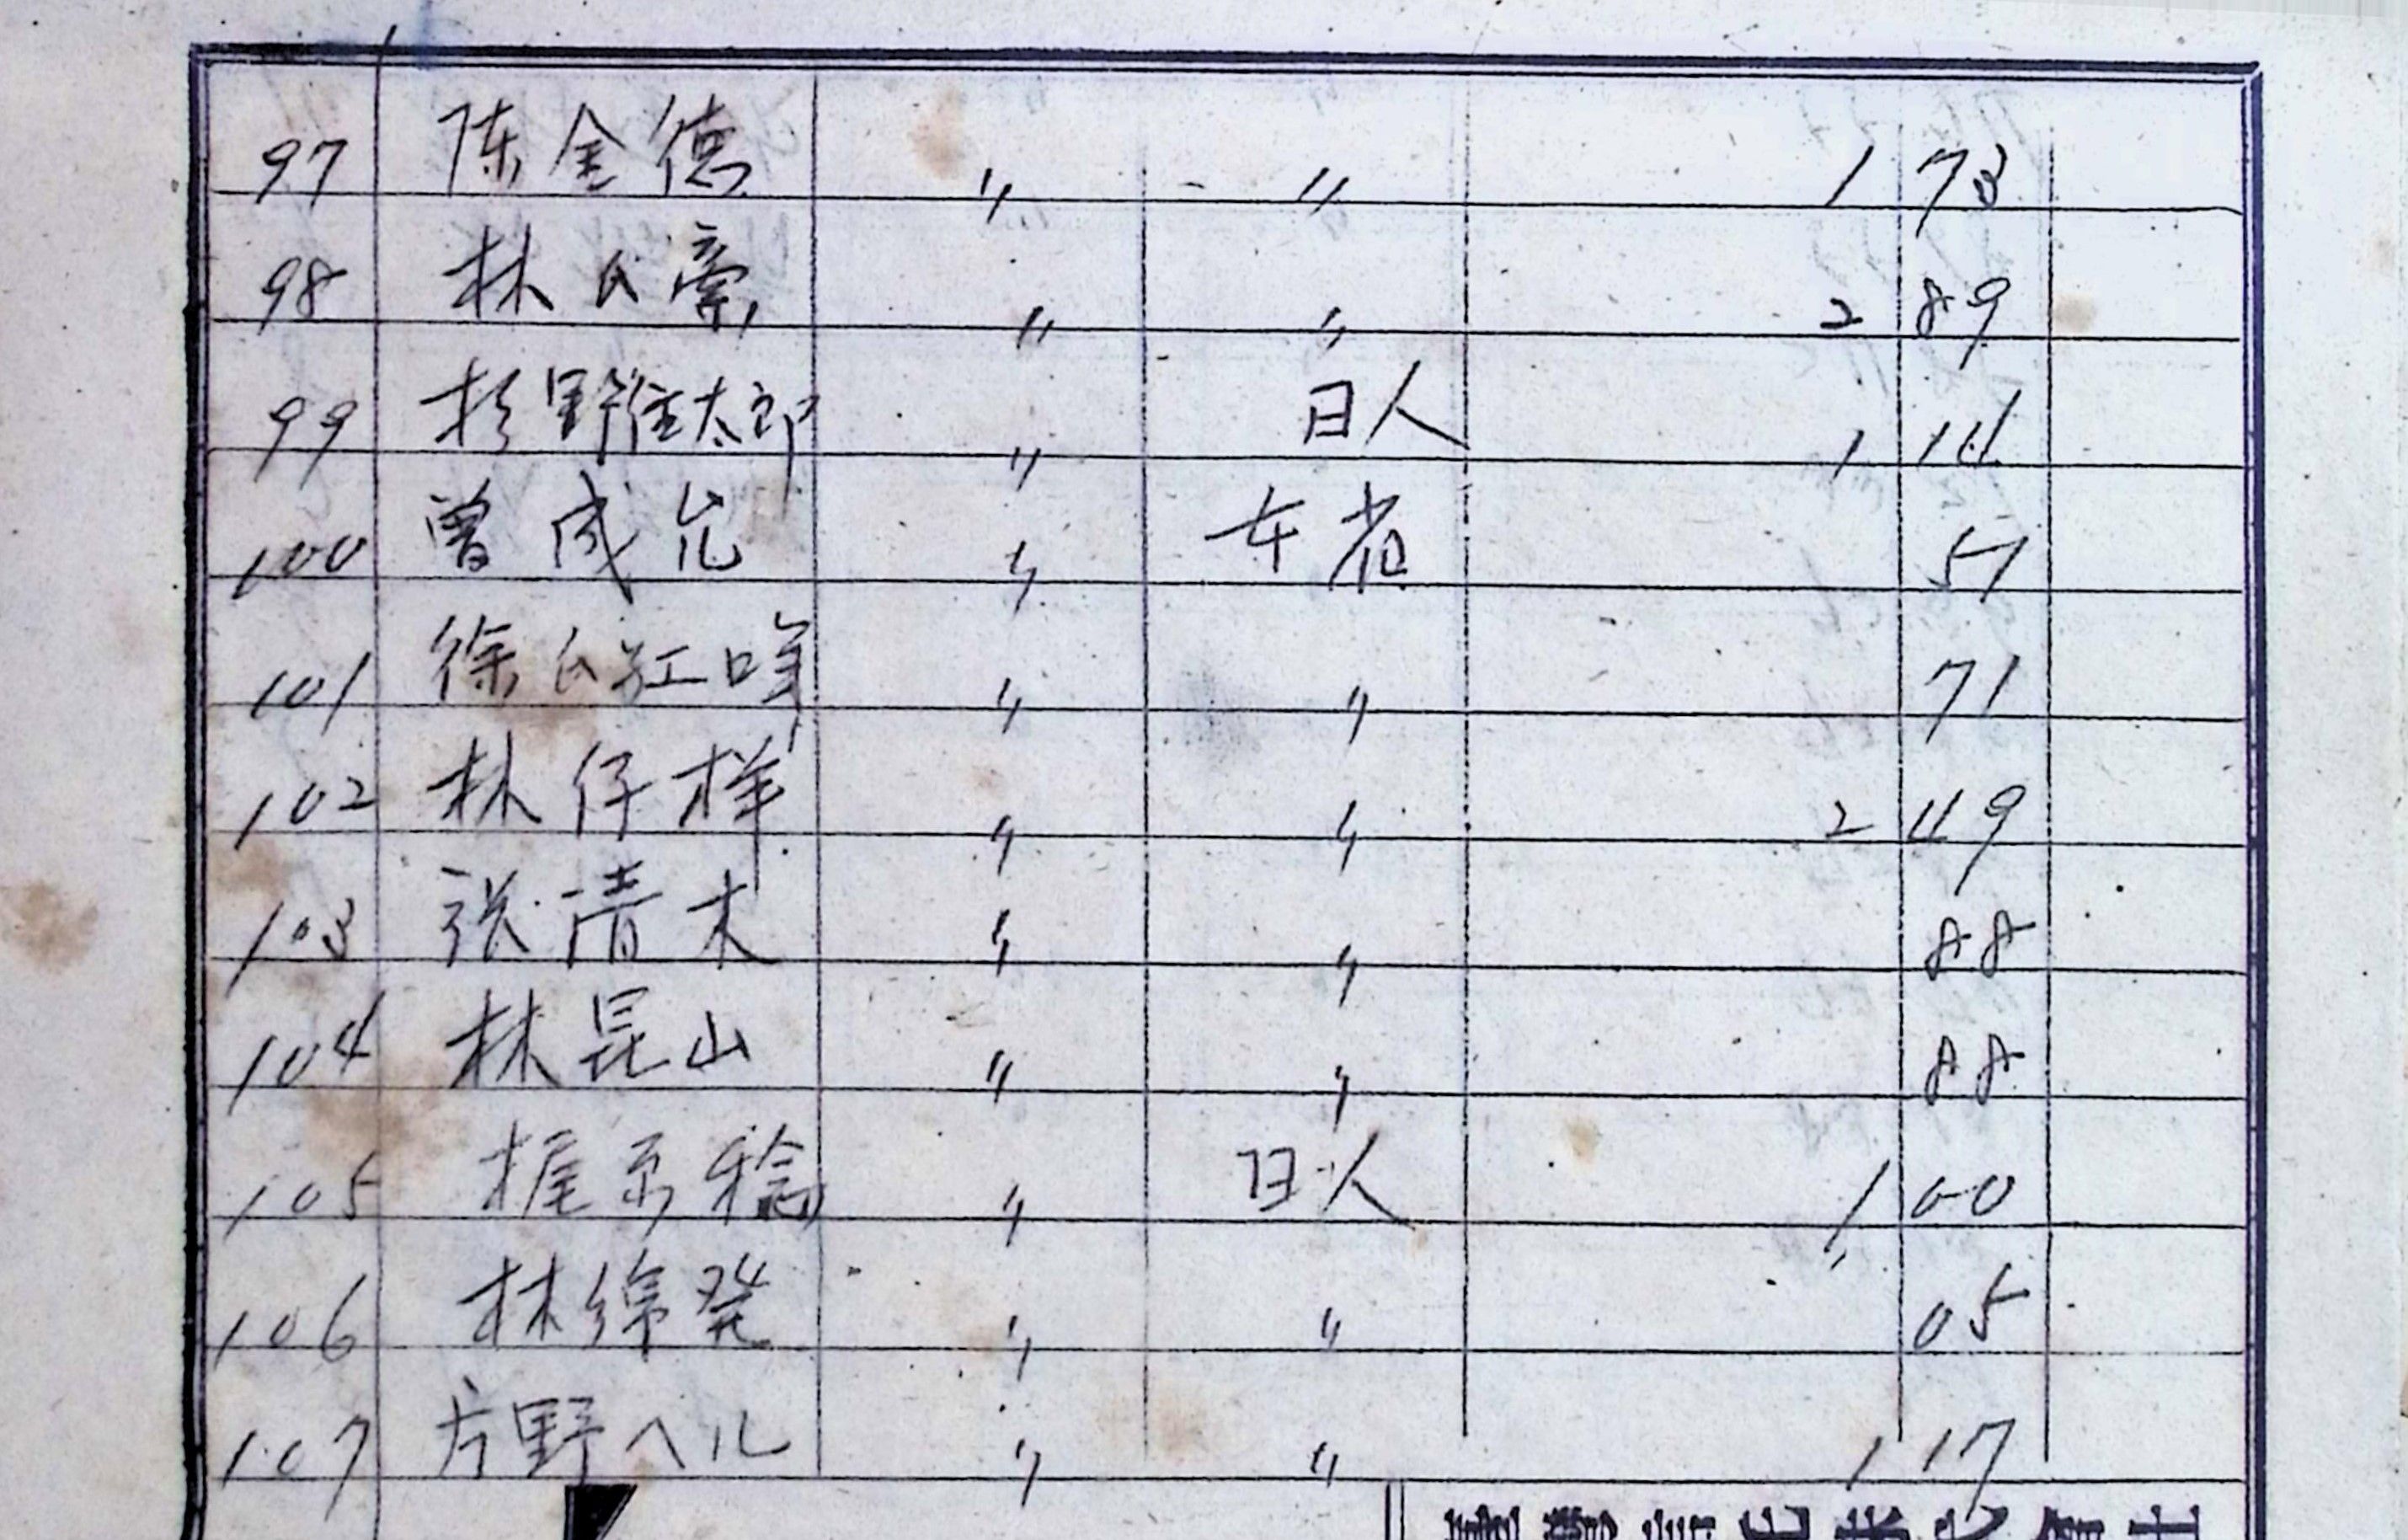 97 陈金德 〃 〃 1 73
98 林氏 〃 〃 2 89
99 杉野 太郎 〃 日人 1 14
100 曾成 〃 本省 51
101 徐氏红 〃 〃 71
102 林仔样 〃 〃 2 49
103 张清木 〃 〃 88
104 林昆山 〃 〃 88
105 梶 〃 日人 1 00
106 林 〃 〃 05
107 片野ハル 〃 〃 1 17